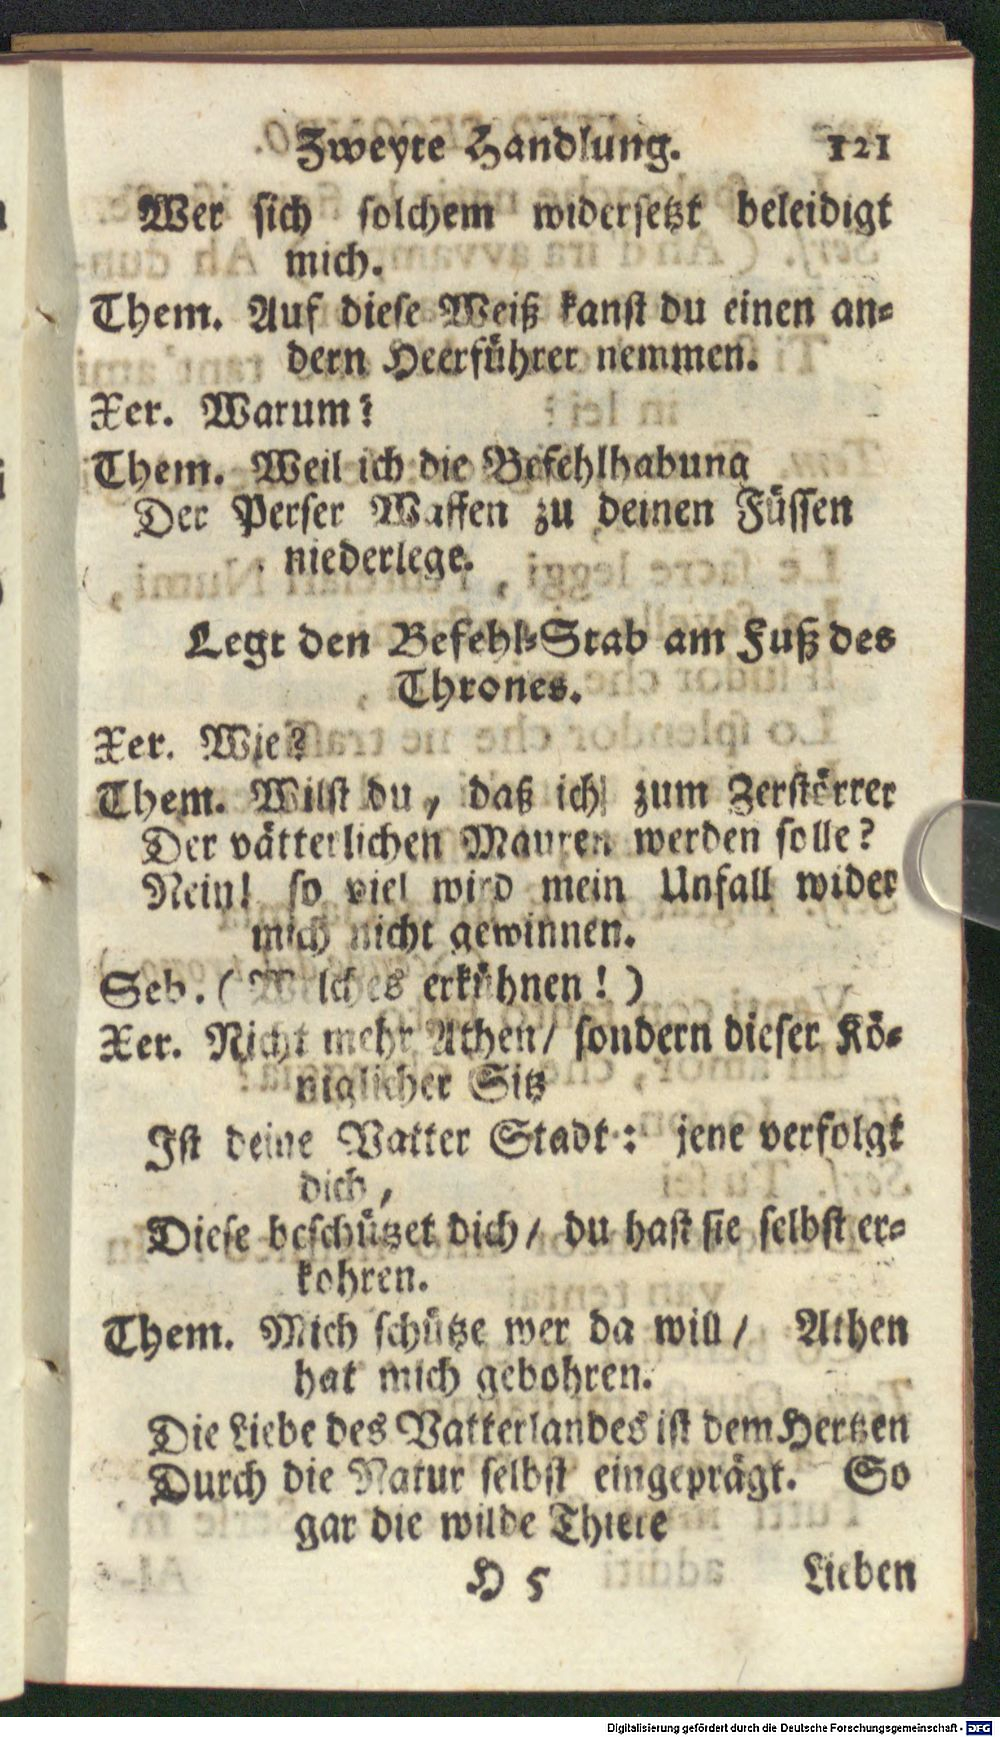 Zweyte Handlung. 121
Wer sich solchem widersetzt beleidigt
mich.
Them. Auf diese Weiß kanst du einen an-
dern Heerführer nemmen.
Xer. Warum?
Them. Weil ich die Befehlhabung
Der Perser Waffen zu deinen Füssen
niederlege.
Legt den Befehl-Stab am Fuß des
Thrones.
Xer. Wie?
Them. Wilst du, daß ich zum Zerstörrer
Der vätterlichen Mauren werden solle?
Nein! so viel wird mein Unfall wider
mich nicht gewinnen.
Seb. (Welches erkühnen!)
Xer. Nicht mehr Athen/ sondern dieser Kö-
niglicher Sitz
Ist deine Vatter Stadt: jene verfolgt
dich,
Diese beschützet dich/ du hast sie selbst er-
kohren.
Them. Mich schütze wer da will/ Athen
hat mich gebohren.
Die Liebe des Vatterlandes ist dem Hertzen
Durch die Natur selbst eingeprägt. So
gar die wilde Thiere
H 5 Lieben
Digitalisierung gefördert durch die Deutsche Forschungsgemeinschaft - DFG